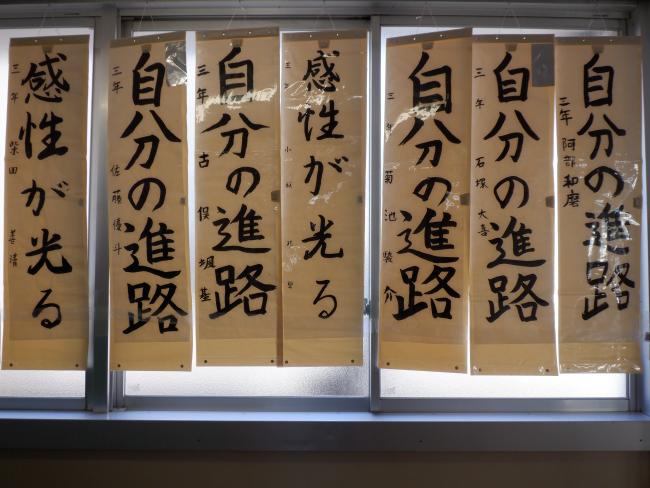 感性が光る
三年 柴田
自分の進路
三年 佐藤優斗
自分の進路
三年 古俣颯基
感性が光る
自分の進路
三年 菊池
介
自分の進路
三年 石塚大喜
自分の進路
三年 阿部和磨